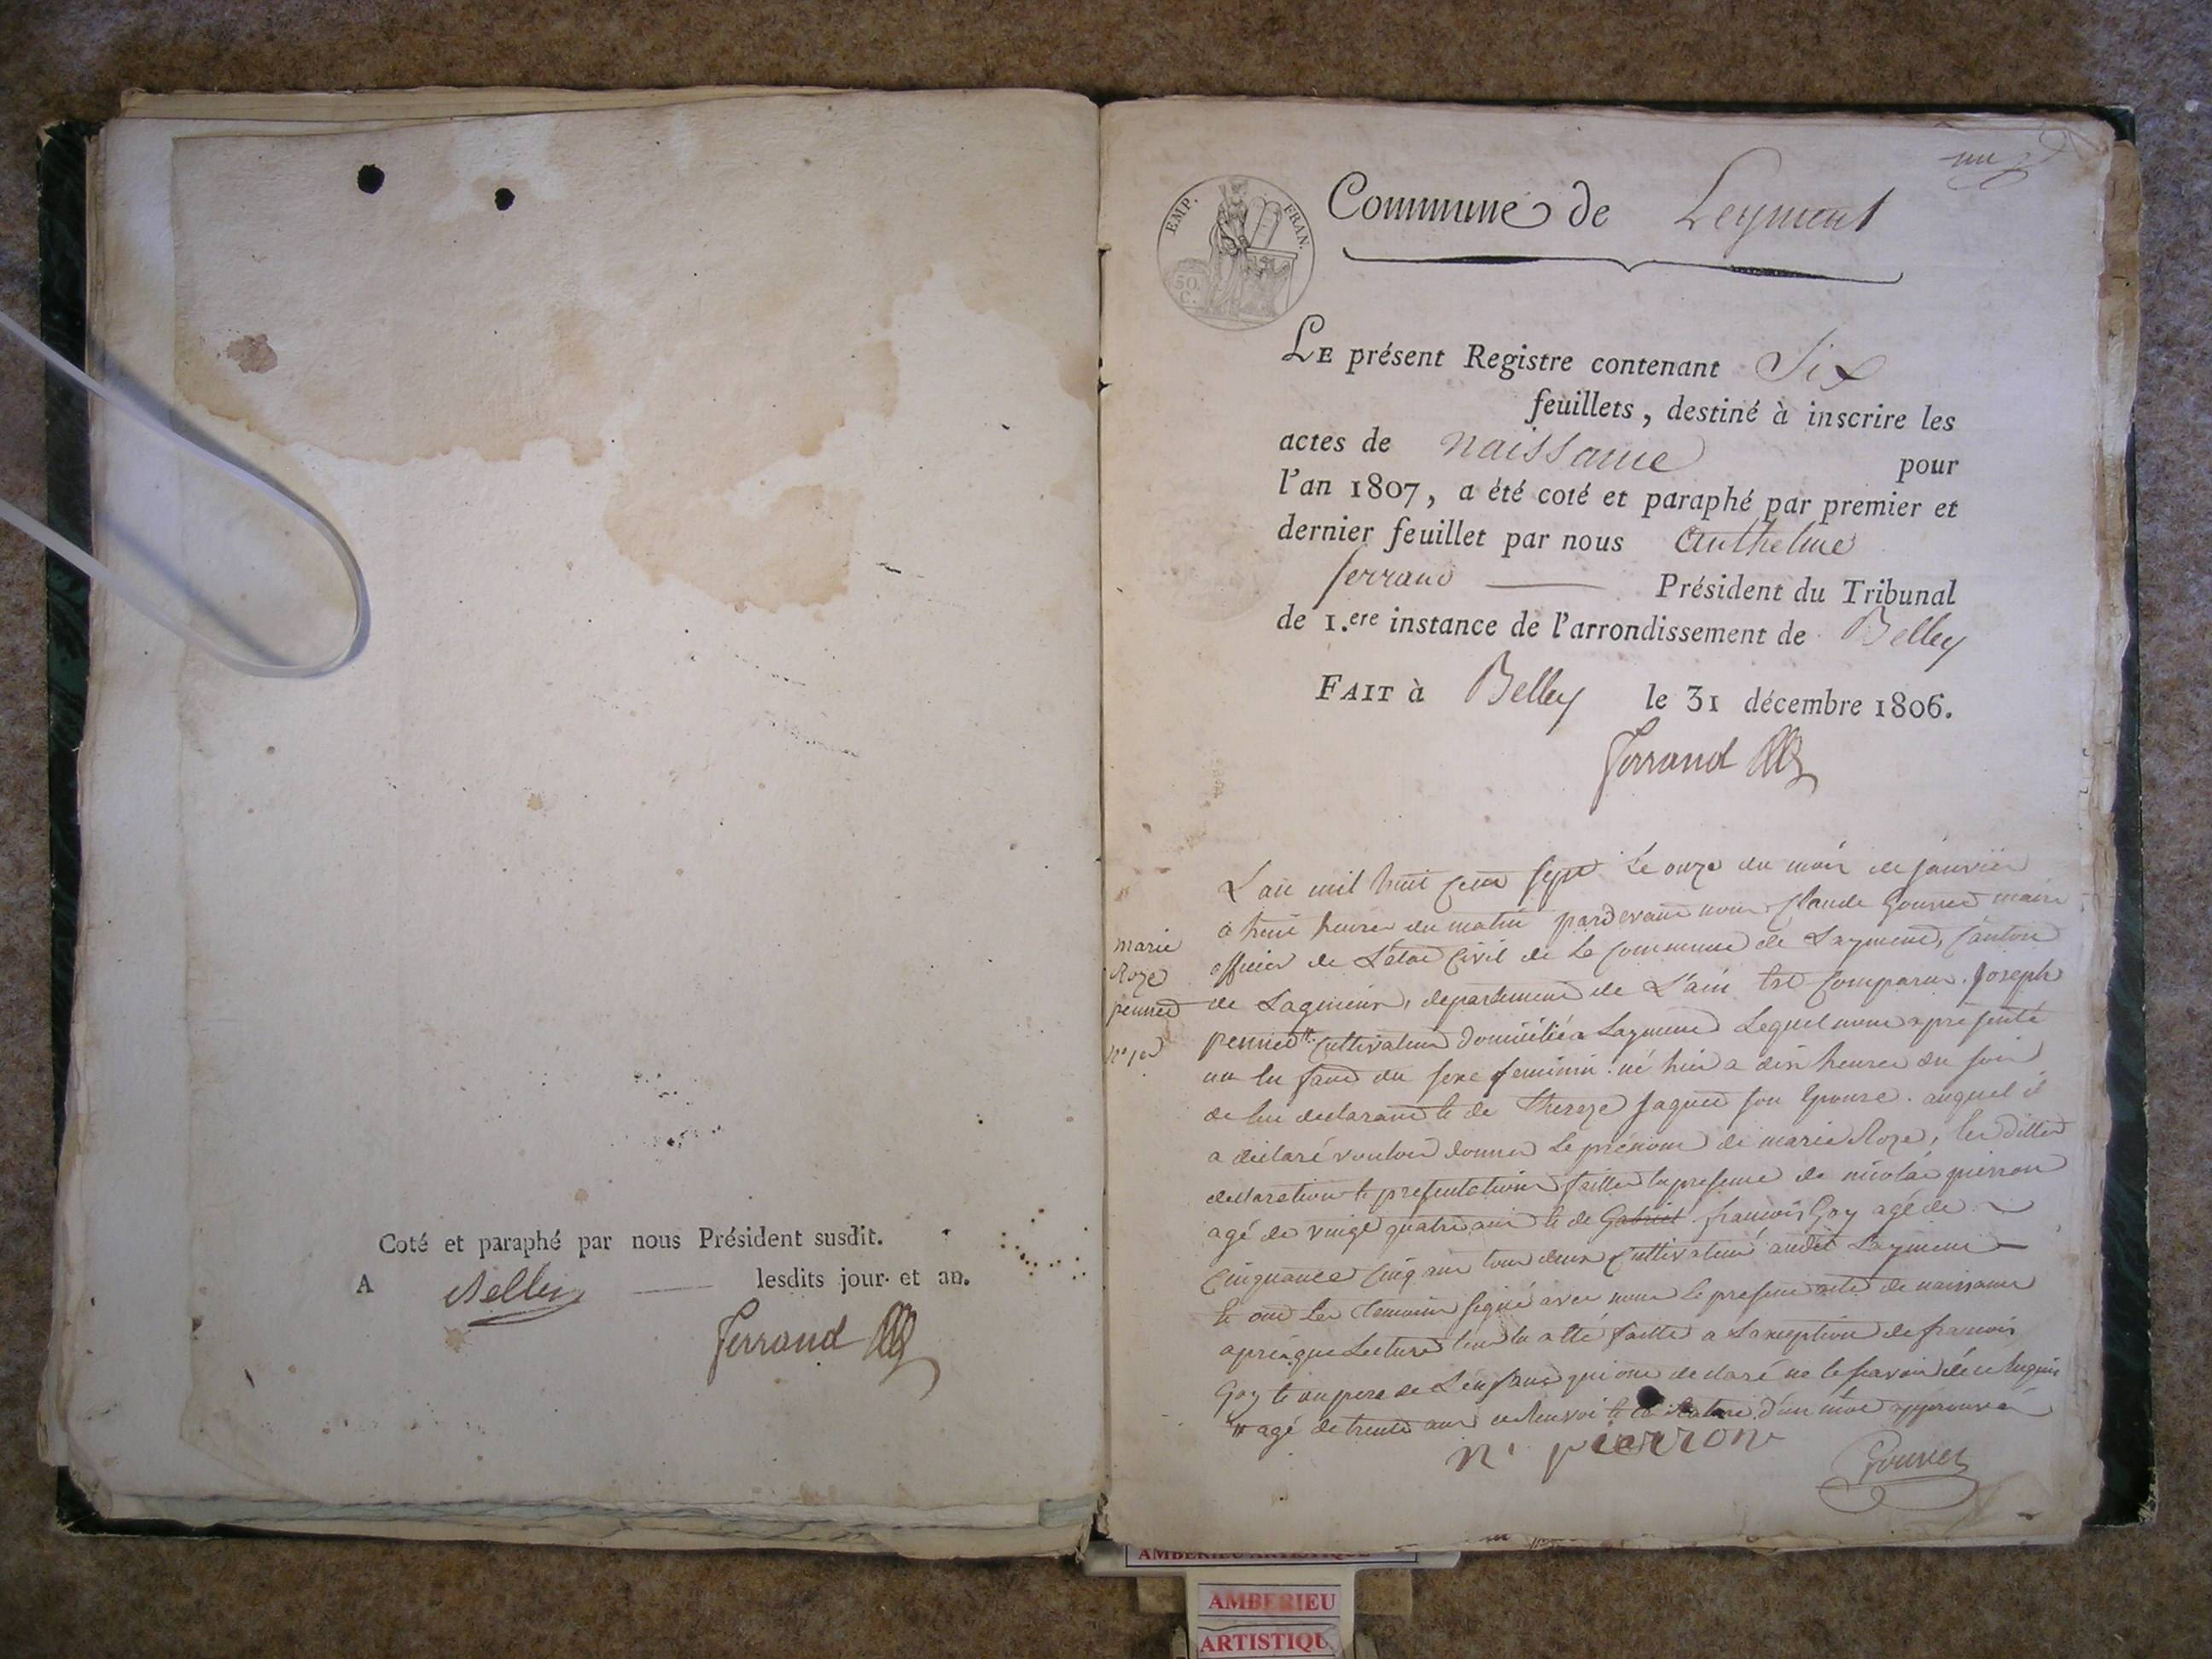 Coté et paraphé par nous Président susdit.
A Belley lesdits jour et an.
Ferrand
un
EMP. FRAN.
50 C.
Commune de Leyment
LE présent Registre contenant Six
feuillets, destiné à inscrire les
actes de naissance pour
l'an 1807, a été coté et paraphé par premier et
dernier feuillet par nous Anthelme
ferrand Président du Tribunal
de 1.ere instance de l'arrondissement de Belley
FAIT à Belley le 31 décembre 1806.
Ferrand
marie
Roze
pennet
n° 1er
L'an mil huit cent sept le onze du mois de janvier
a huit heures du matin pardevant nous Claude Gouvet maire
officier de L'état Civil de la commune de Layment, Canton
de Lagnieux, departement de L'ain Est Comparu Joseph
pennet # Cultivateur domicilié a Layment Lequel nous a presenté
un En fant du sexe feminin né hier a dix heures du soir
de lui declarant et de Thereze Jaquet son Epouse. auquel il
a déclaré vouloir donner Le prenom de marie Roze, les dittes
declaration et presentation faittes En presence de nicolas pierron
agé de vingt quatre ans et de Gabriel françois Goy agé de
Cinquante Cinq ans tous deux Cultivateur audit Layment
Et ont Les temoins signé avec nous le present acte de naissance
après que Lecture leur En a Eté faitte a L'exception de francois
Goy et du pere de L'enfant qui ont declaré ne le savoir de ce Enquis
# agé de trente ans ce Renvoi et la Rature d'un mot approuvée
n. pierron
Gouvet
AMBERIEU ARTISTIQUE
AMBERIEU
ARTISTIQU